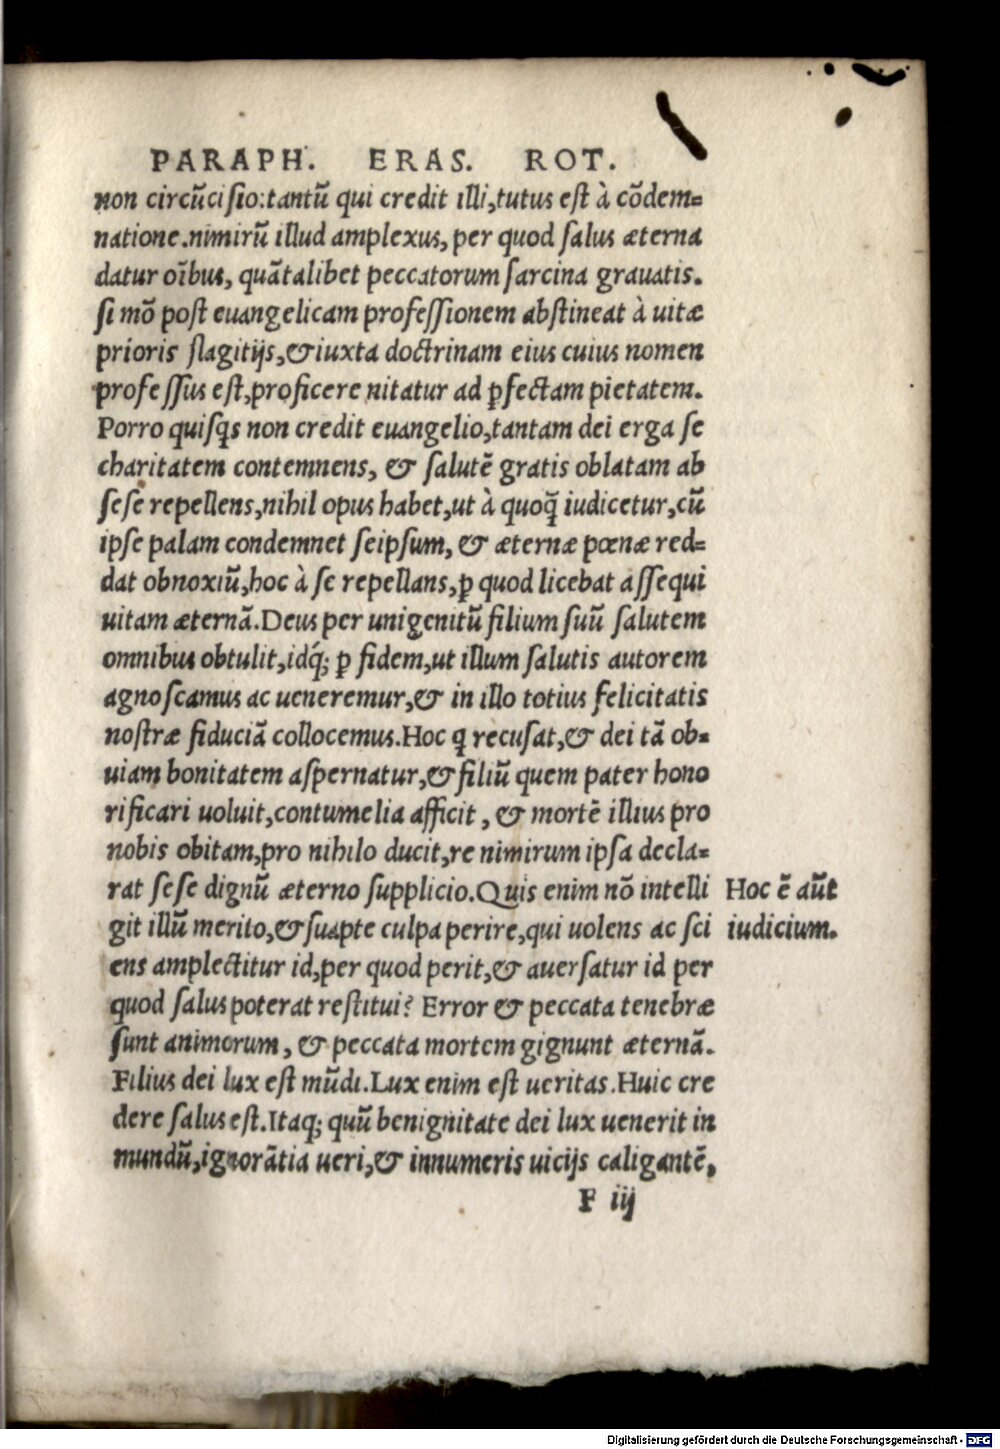 PARAPH. ERAS. ROT.
non circũcisio:tantũ qui credit illi,tutus est à cõdem=
natione.nimirũ illud amplexus, per quod salus æterna
datur oĩbus, quãtalibet peccatorum sarcina grauatis.
si mõ post euangelicam professionem abstineat à uitæ
prioris flagitijs,&iuxta doctrinam eius cuius nomen
professus est,proficere nitatur ad ꝑfectam pietatem.
Porro quisqs non credit euangelio,tantam dei erga se
charitatem contemnens, & salutẽ gratis oblatam ab
sese repellens,nihil opus habet,ut à quoq̃ iudicetur,cũ
ipse palam condemnet seipsum, & æternæ pœnæ red=
dat obnoxiũ,hoc à se repellans,ꝑ quod licebat assequi
uitam æternã.Deus per unigenitũ filium suũ salutem
omnibus obtulit,idq́; ꝑ fidem,ut illum salutis autorem
agnoscamus ac ueneremur,& in illo totius felicitatis
nostræ fiduciã collocemus.Hoc q recusat,& dei tã ob=
uiam bonitatem aspernatur,&filiũ quem pater hono
rificari uoluit,contumelia afficit, & mortẽ illius pro
nobis obitam,pro nihilo ducit,re nimirum ipsa decla=
rat sese dignũ æterno supplicio.Quis enim nõ intelli
git illũ merito,&suapte culpa perire,qui uolens ac sci
ens amplectitur id,per quod perit,& auersatur id per
quod salus poterat restitui? Error & peccata tenebræ
sunt animorum, & peccata mortem gignunt æternã.
Filius dei lux est mũdi.Lux enim est ueritas.Huic cre
dere salus est.Itaq; quũ benignitate dei lux uenerit in
mundũ,ignorãtia ueri,& innumeris uicijs caligantẽ,
Hoc ẽ aũt
iudicium.
F iij
Digitalisierung gefördert durch die Deutsche Forschungsgemeinschaft - DFG